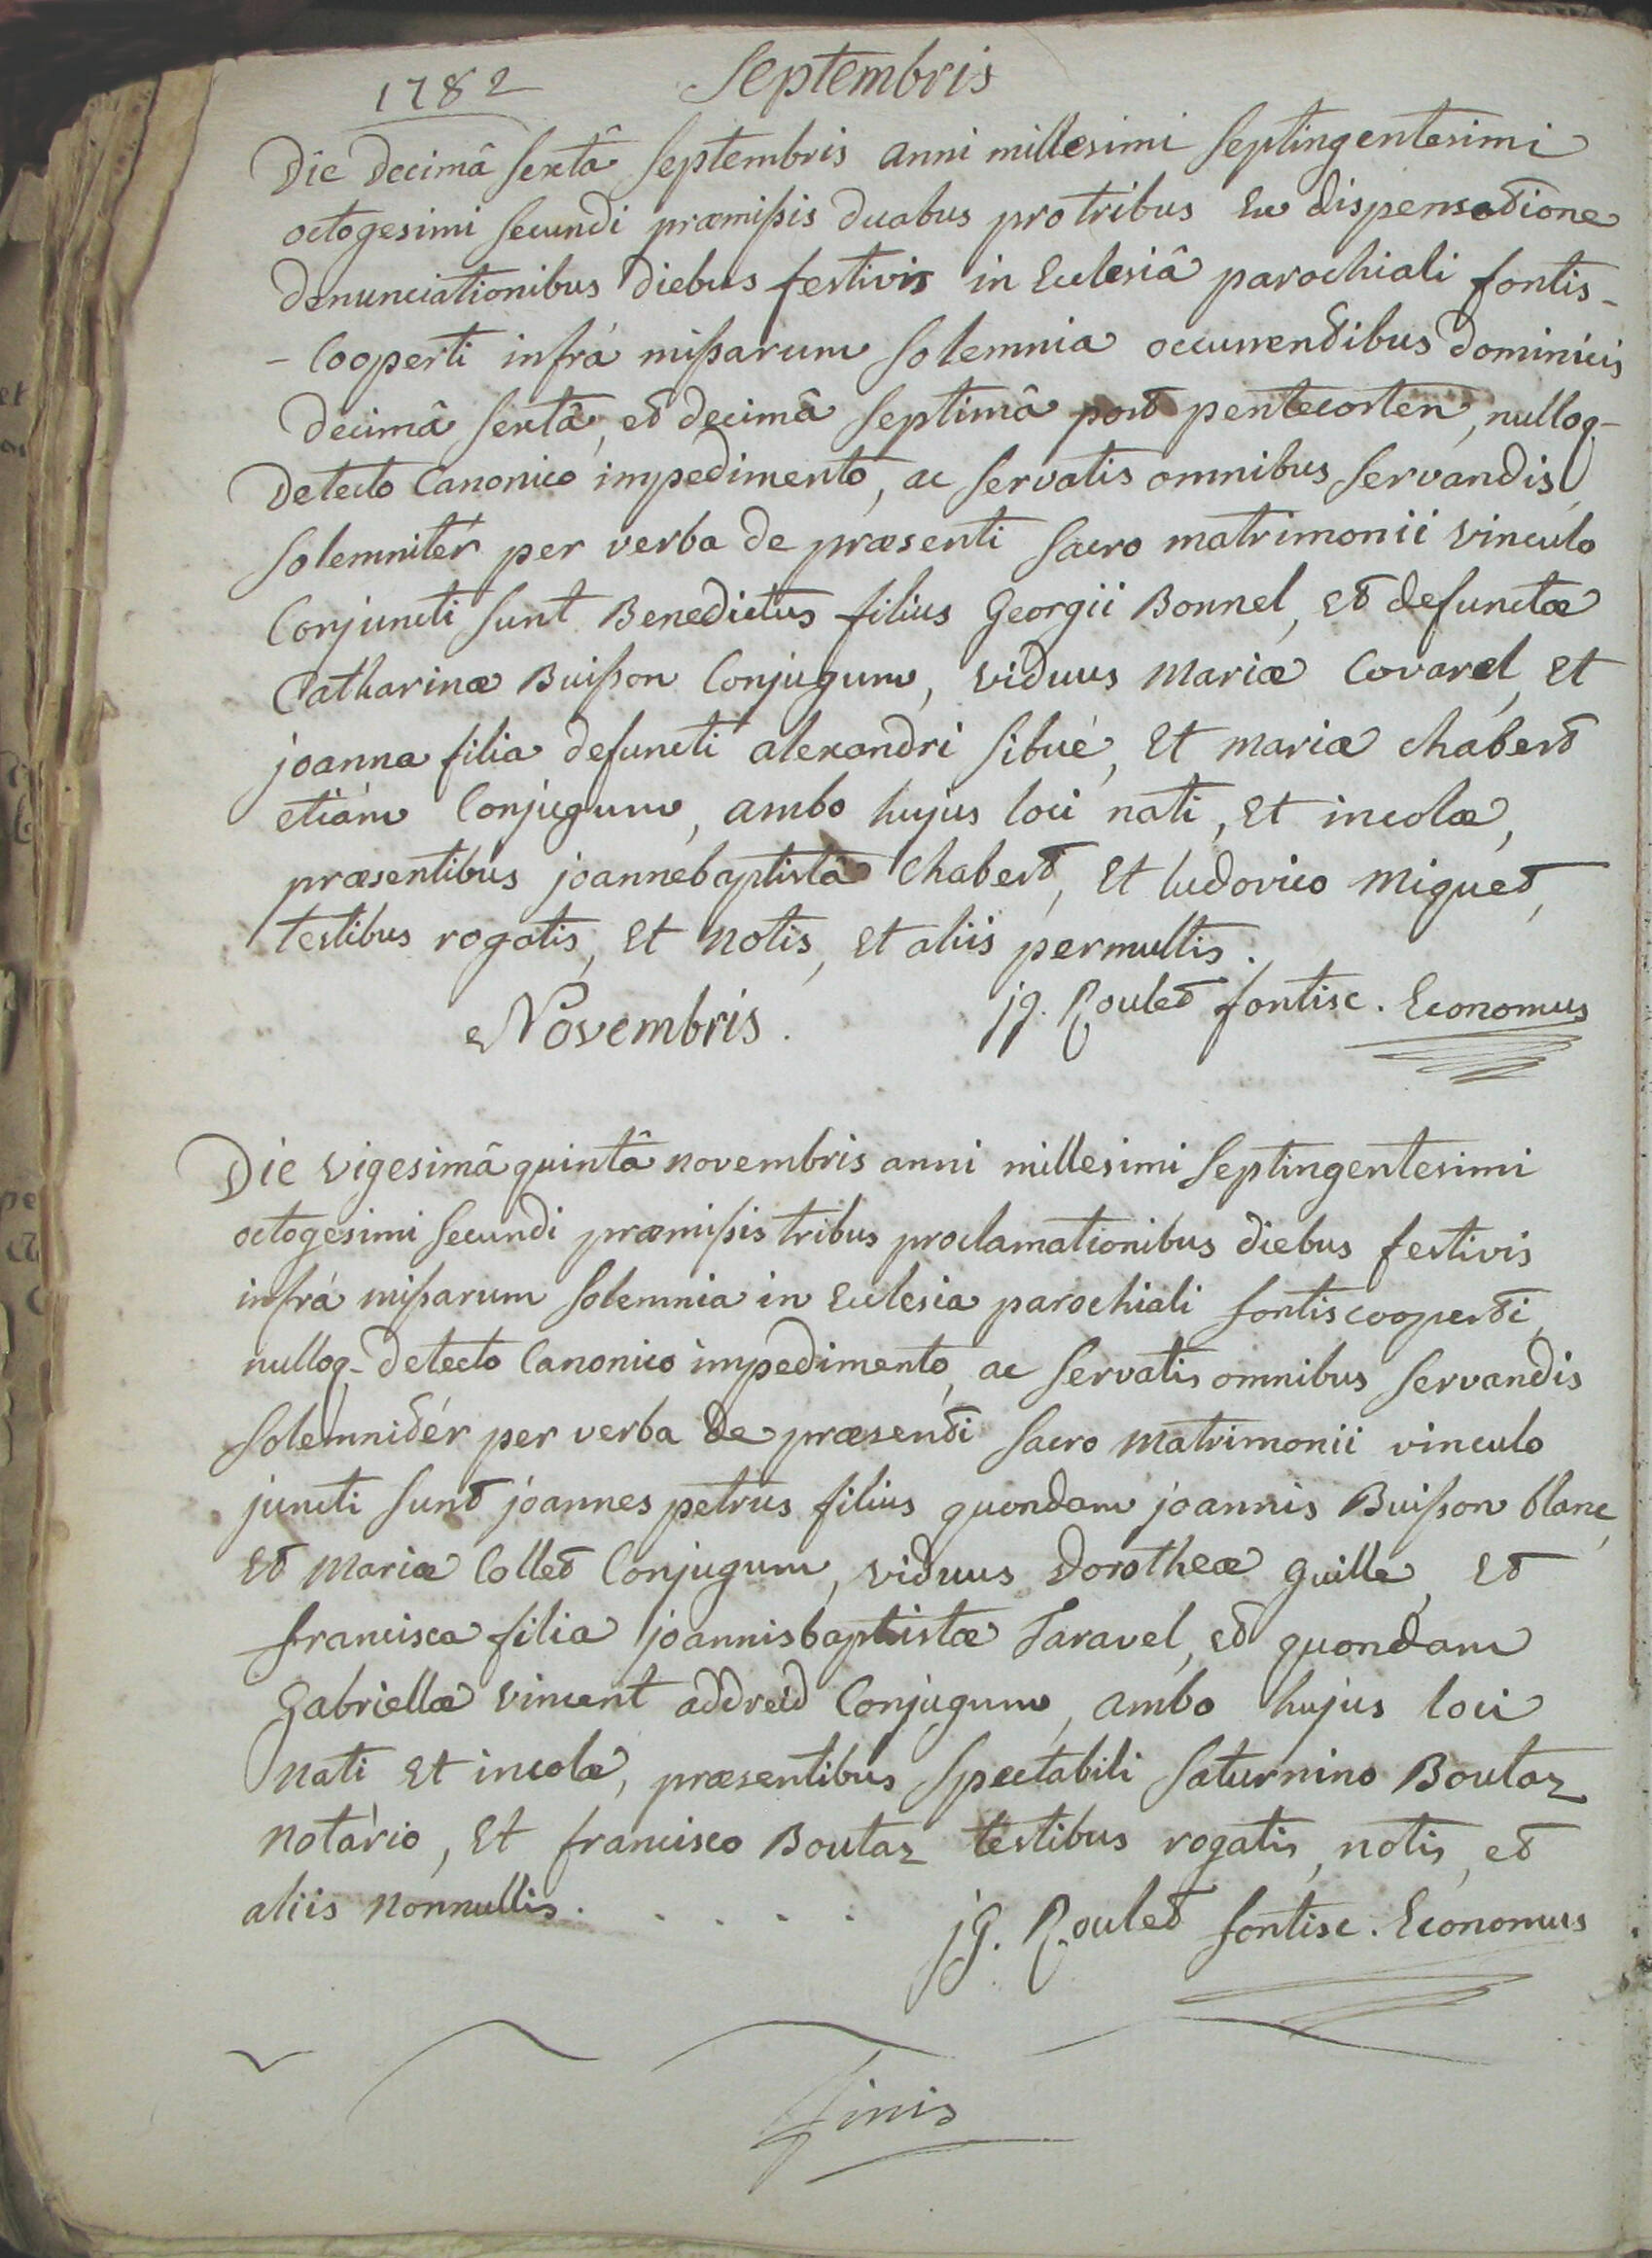 1782 Septembris
Die decimâ sextâ septembris anni millesimi septingentesimi
octogesimi secundi præmissis duabus pro tribus ex dispensatione
denunciationibus diebus festivis in Ecclesiâ parochiali fontis-
- Cooperti infrà missarum solemnia occurrentibus dominicis
decimâ sextâ, et decimâ septimâ post pentecosten, nulloq-
detecto Canonico impedimento, ac servatis omnibus servandis,
solemnitèr per verba de præsenti sacro matrimonii vinculo
Conjuncti sunt Benedictus filius Georgii Bonnel, et defunctæ
Catharinæ Buisson Conjugum, viduus Mariæ Covarel, et
joanna filia defuncti alexandri sibuè, et mariæ chabert
etiàm Conjugum, ambo hujus loci nati, et incolæ,
præsentibus joannebaptistâ Chabert, et ludovico Miguet,
testibus rogatis, et notis, et aliis permultis.
jg. Roulet fontisc. Economus
Novembris.
Die vigesimâ quintâ novembris anni millesimi septingentesimi
octogesimi secundi præmissis tribus proclamationibus diebus festivis
infrà missarum solemnia in Ecclesia parochiali fontiscooperti,
nulloq- detecto Canonico impedimento, ac servatis omnibus servandis
solemnitèr per verba de præsenti sacro matrimonii vinculo
juncti sunt joannes petrus filius quondam joannis Buisson blanc,
et Mariæ Collet Conjugum, viduus Dorotheæ Guille, et
francisca filia joannisbaptistæ Taravel, et quondam
Gabriellæ Vincent addreid Conjugum, ambo hujus loci
nati et incolæ, præsentibus spectabili saturnino Boutaz
notario, et francisco Boutaz testibus rogatis, notis, et
aliis nonnullis. . . . .
jg. Roulet fontisc. Economus
Finis